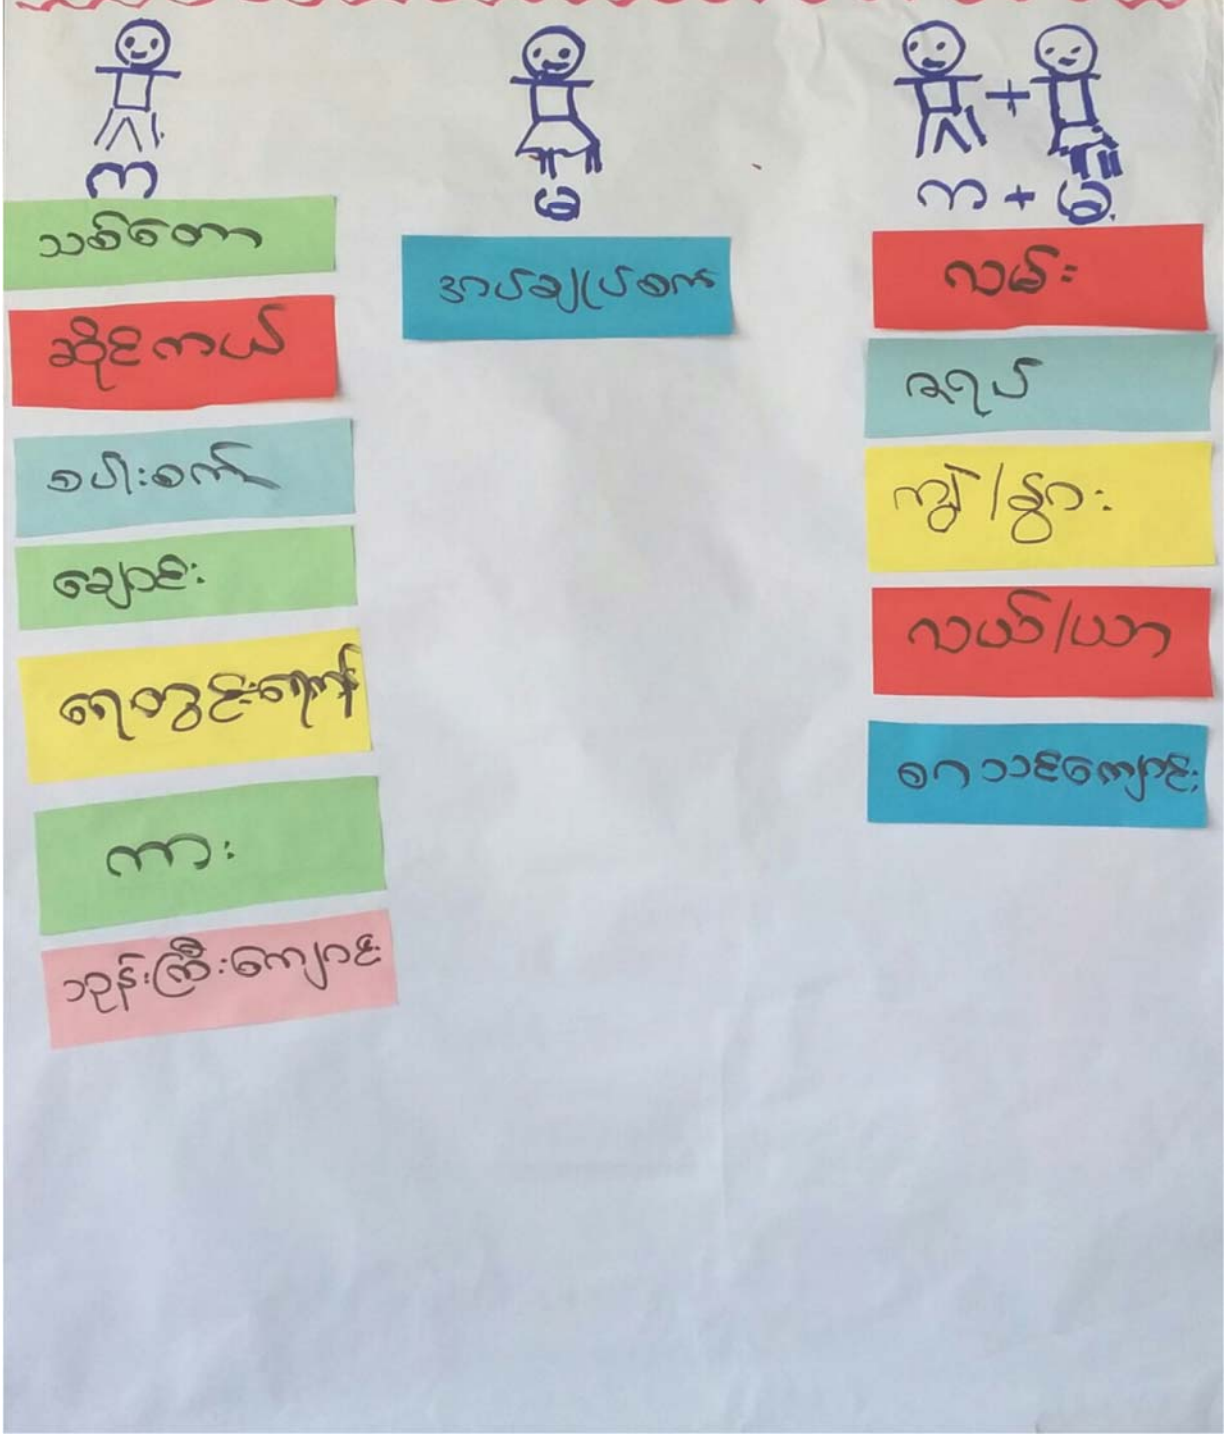 က
သစ်တော
ဆိုင်ကယ်
စပါးစက်
ချောင်း
ရေတွင်းရေကန်
ကား
ဘုန်းကြီးကျောင်း
ခ
အပ်ချုပ်စက်
က + ခ
လမ်း
ဇရပ်
ကျွဲ/နွား
လယ်/ယာ
စာသင်ကျောင်း